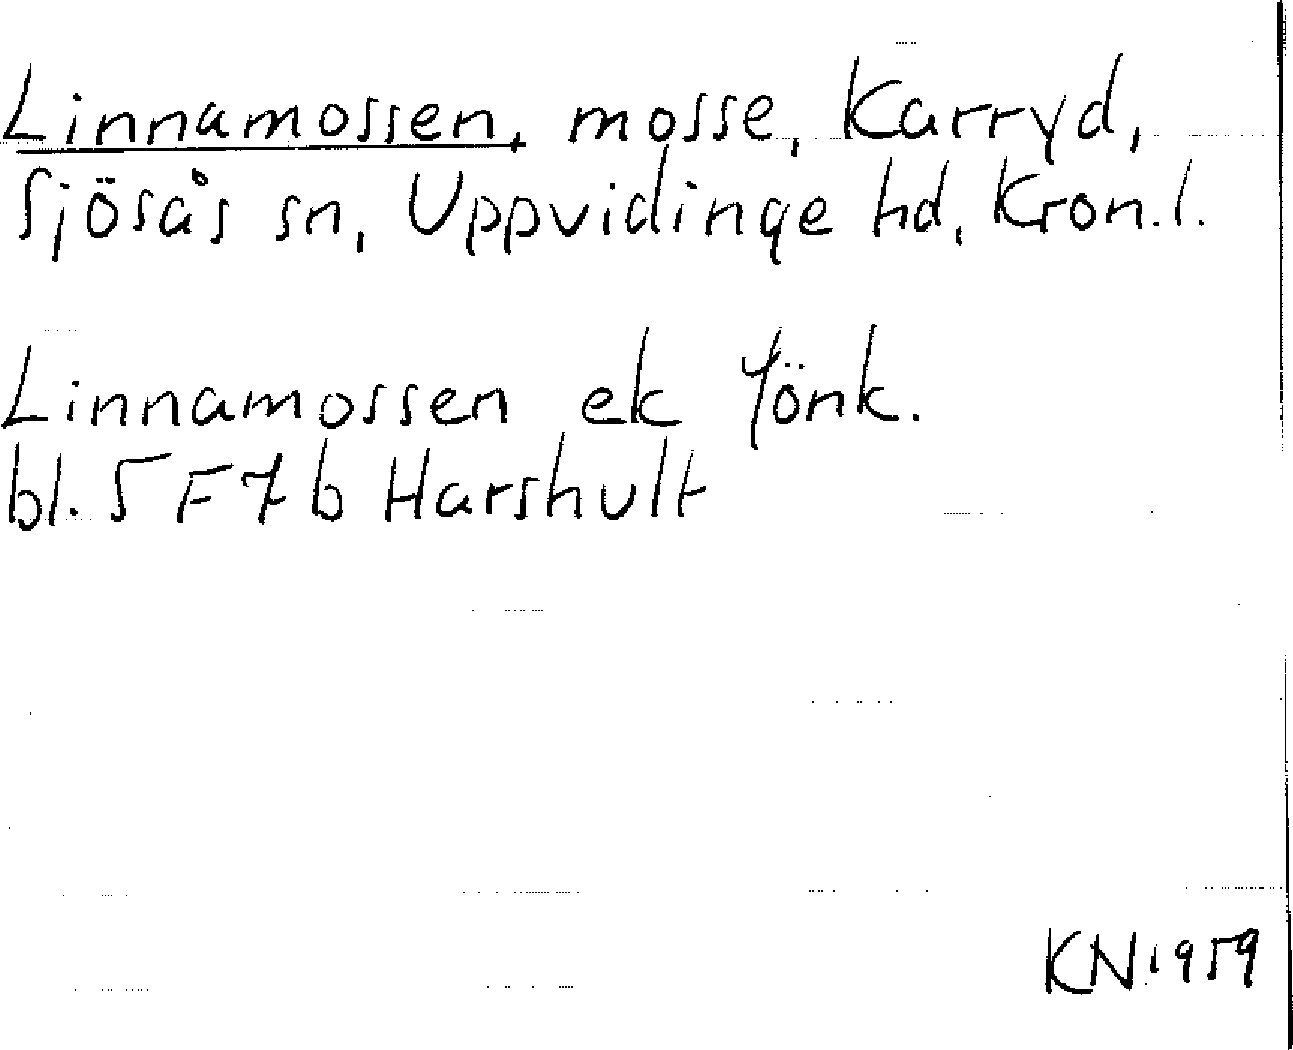 Linnamossen, mosse, Karryd,
Sjösås sn, Uppvidinge hd, Kron. l.
Linnamossen ek Jönk.
bl. 5 F 7 b Harshult
KN.1959